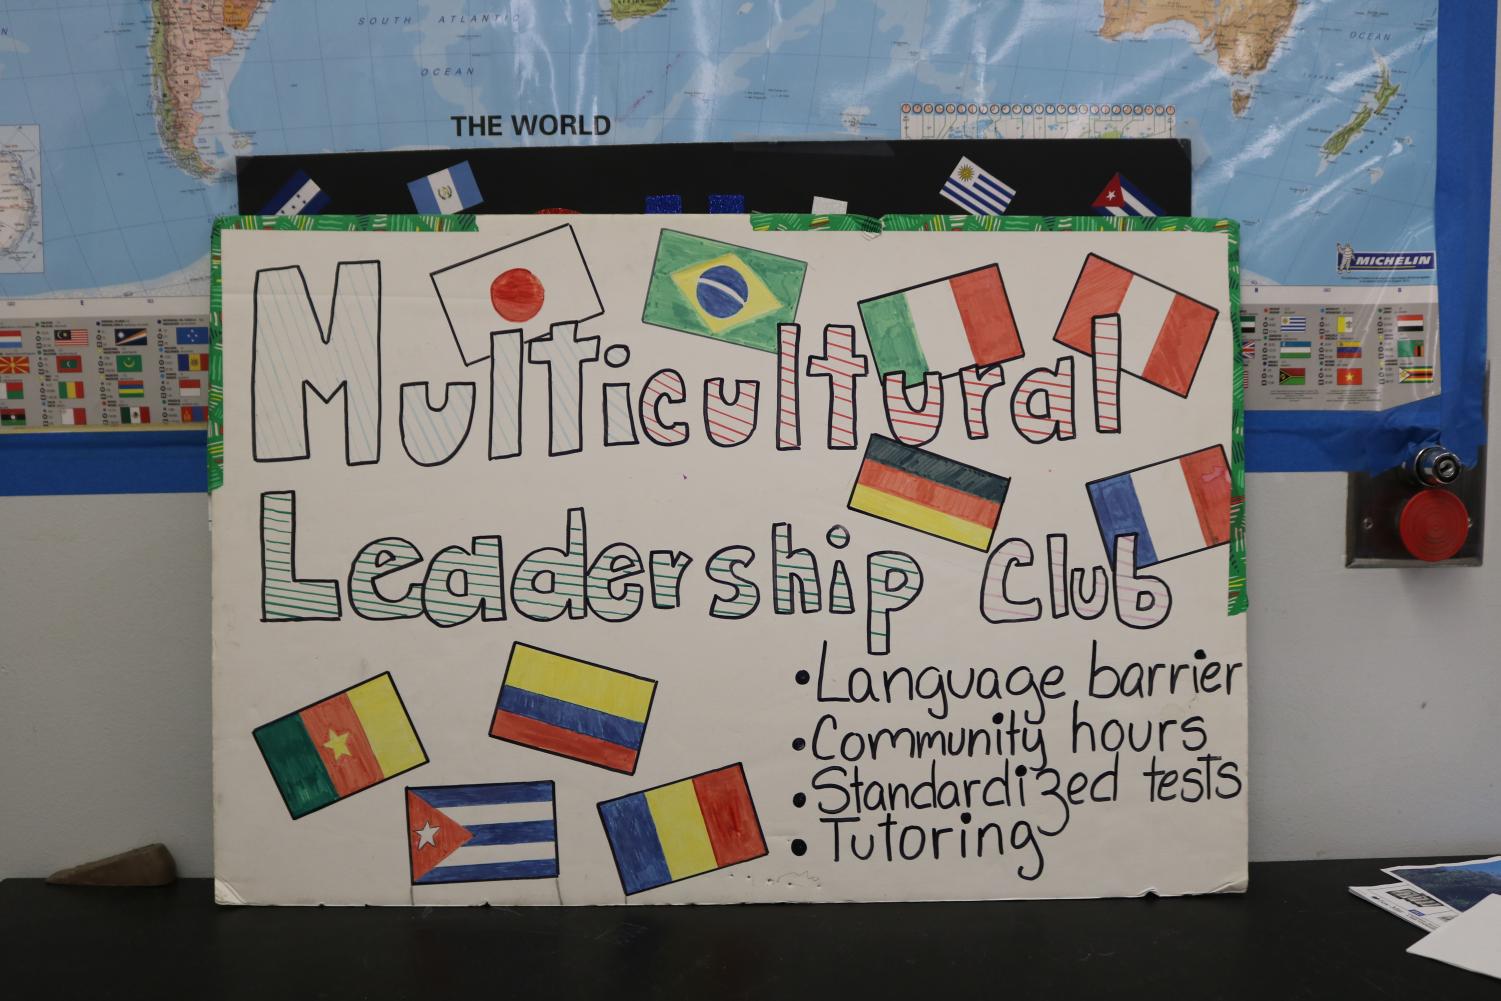 SOUTH ATLANTIC
OCEAN
OCEAN
THE WORLD
MICHELIN
Multicultural
Leadership Club
• Language barrier
• Community hours
• Standardized tests
• Tutoring